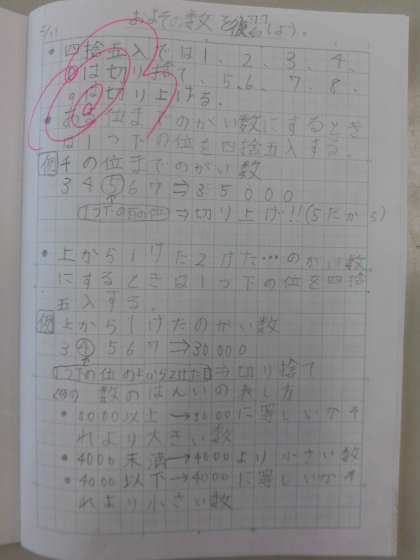 およその数を復習しよう。
• 四捨五入では1、2、3、4、
0は切り捨て、5、6、7、8、
9は切り上げる。
• ある位までのがい数にするとき
は1つ下の位を四捨五入する。
例 千の位までのがい数
3 4 5 6 7 ⇒ 3 5 0 0 0
1つ下の百の位 ⇒ 切り上げ!!(5だから)
• 上から1けた2けた…のがい数
にするときは1つ下の位を四捨
五入する。
例 上から1けたのがい数
3 4 5 6 7 ⇒ 30000
1つ下の位の上から2けた目 ⇒ 切り捨て
数のはんいの表し方
• 4000以上 → 4000に等しいかそ
れより大きい数
• 4000未満 → 4000より小さい数
• 4000以下 → 4000に等しいかそ
れより小さい数